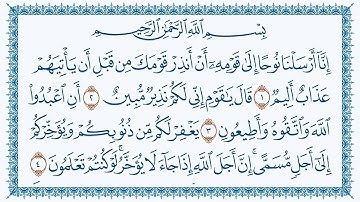 بِسْمِ اللَّهِ الرَّحْمَٰنِ الرَّحِيمِ
إِنَّا أَرْسَلْنَا نُوحًا إِلَىٰ قَوْمِهِ أَنْ أَنذِرْ قَوْمَكَ مِن قَبْلِ أَن يَأْتِيَهُمْ
عَذَابٌ أَلِيمٌ ١ قَالَ يَا قَوْمِ إِنِّي لَكُمْ نَذِيرٌ مُّبِينٌ ٢ أَنِ اعْبُدُوا
اللَّهَ وَاتَّقُوهُ وَأَطِيعُونِ ٣ يَغْفِرْ لَكُم مِّن ذُنُوبِكُمْ وَيُؤَخِّرْكُمْ
إِلَىٰ أَجَلٍ مُّسَمًّى ۚ إِنَّ أَجَلَ اللَّهِ إِذَا جَاءَ لَا يُؤَخَّرُ ۖ لَوْ كُنتُمْ تَعْلَمُونَ ٤